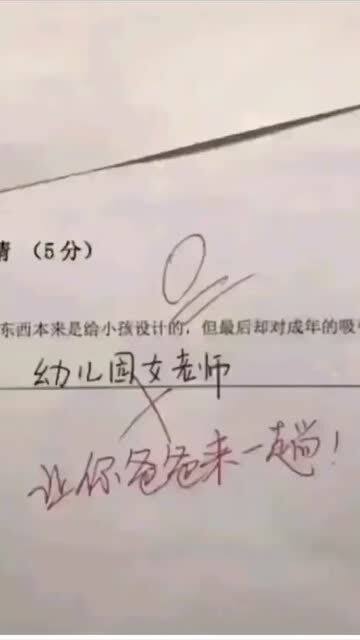 情 （5分）
0
东西本来是给小孩设计的，但最后却对成年的吸
幼儿园女老师
让你爸爸来一趟！